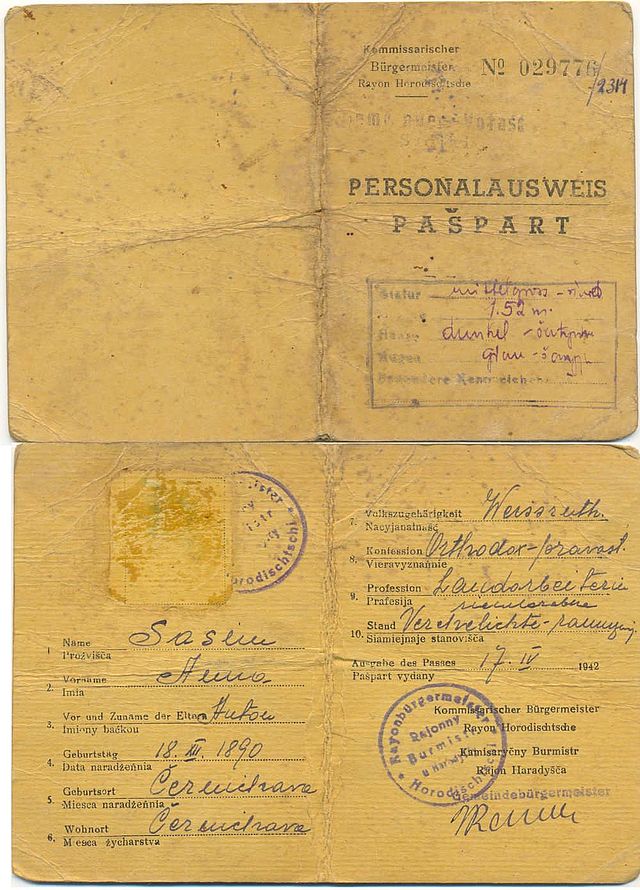 Kommissarischer
Bürgermeister
Rayon Horodischtsche
№ 029776
/2314
PERSONALAUSWEIS
PAŠPART
Statur mittelgross
1.52 m.
Haare dunkel
Augen
Besondere Kennzeichen
1. Name Sasim
Prozvišča
2. Vorname
Imia
3. Vor und Zuname der Eltern Anton
Imiony baćkou
4. Geburtstag 18. XII. 1890
Data naradžeńnia
5. Geburtsort
Miesca naradžeńnia
6. Wohnort
Miesca žycharstva
7. Volkszugehärigkeit Weissruth.
Nacyjanalnaść
8. Konfession Orthodox-pravosl.
Vieravyznańnie
9. Profession Landarbeiterin
Prafesija
10. Stand
Siamiejnaje stanovišča
Ausgabe des Passes 17. IV 1942
Pašpart vydany
Kommissarischer Bürgermeister
Rayon Horodischtsche
Kamisaryčny Burmistr
Rajon Haradyšča
Gemeindebürgermeister
Rayonbürgermeister
Rajonny
Burmistr
Horodischtsche